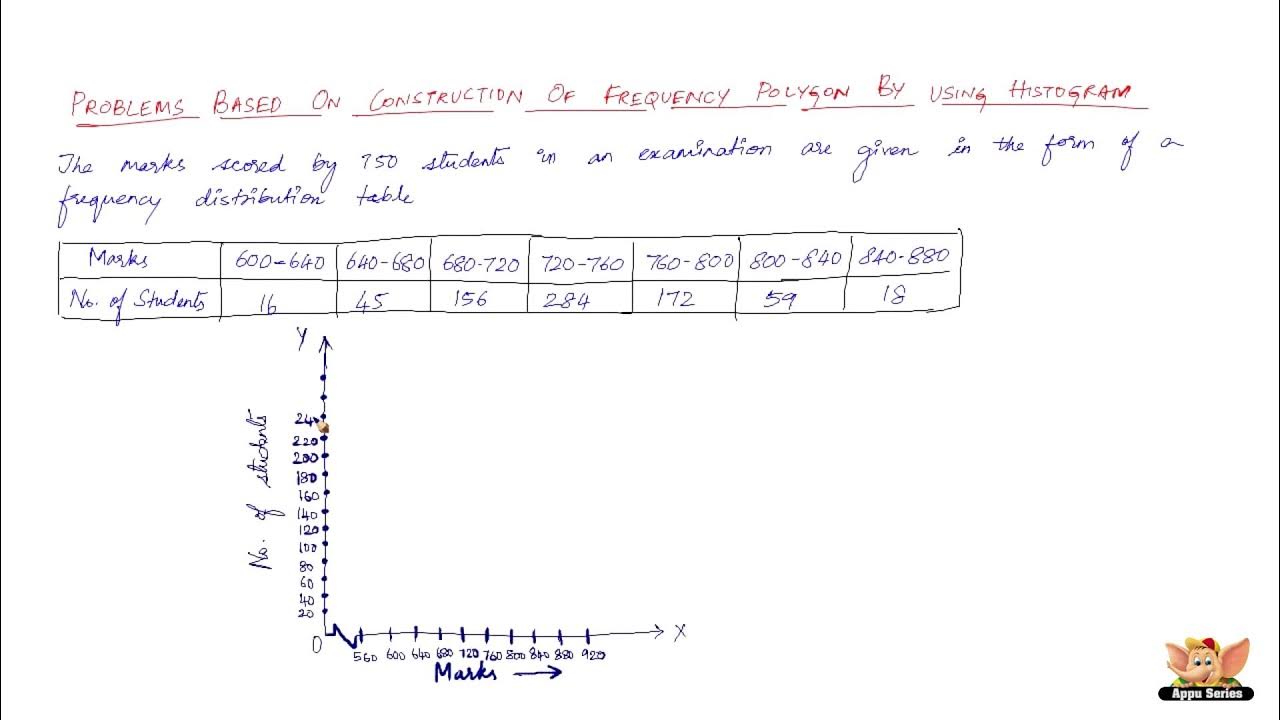 PROBLEMS BASED ON CONSTRUCTION OF FREQUENCY POLYGON BY USING HISTOGRAM
The marks scored by 750 students in an examination are given in the form of a
frequency distribution table
Marks 600-640 640-680 680-720 720-760 760-800 800-840 840-880
No. of Students 16 45 156 284 172 59 18
Y
No. of students
24
220
200
180
160
140
120
100
80
60
40
20
O
X
560 600 640 680 720 760 800 840 880 920
Marks
Appu Series